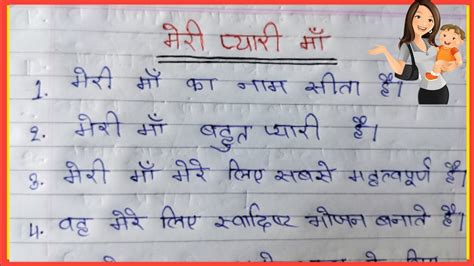 मेरी प्यारी माँ
1. मेरी माँ का नाम सीता है।
2. मेरी माँ बहुत प्यारी है।
3. मेरी माँ मेरे लिए सबसे महत्वपूर्ण है।
4. वह मेरे लिए स्वादिष्ट भोजन बनाते है।